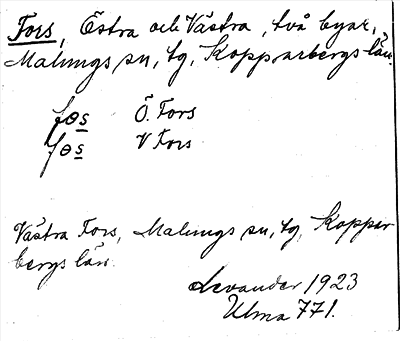 Fors, Östra och Västra, två byar,
Malungs sn, tg, Kopparbergs län.
fɵs Ö. Fors
fɵs V Fors
Västra Fors, Malungs sn, tg, Koppar
bergs län.
Levander 1923
Ulma 771.